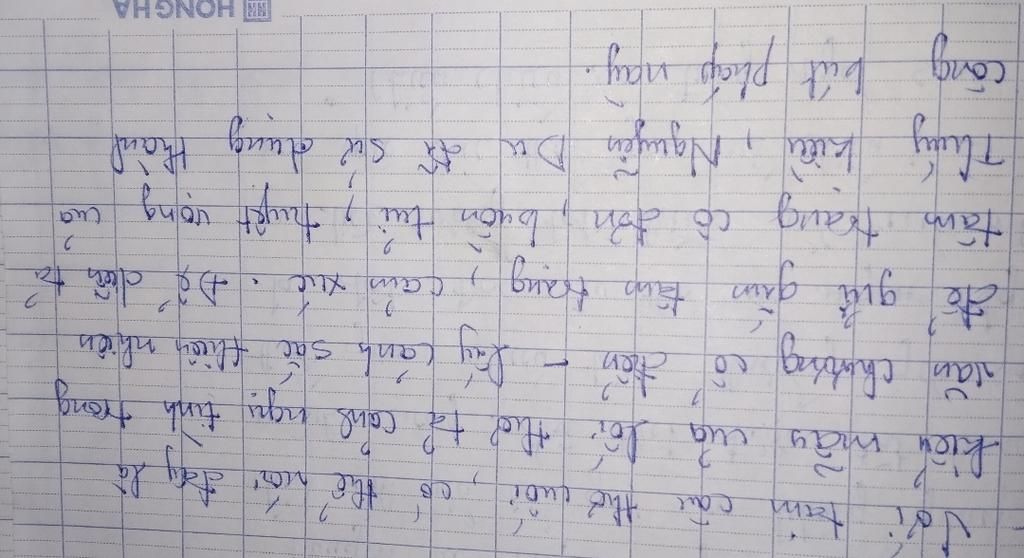 - Với tám câu thơ cuối, có thể nói đây là
kiểu mẫu của lối thơ tả cảnh ngụ tình trong
văn chương cổ điển - lấy cảnh sắc thiên nhiên
để gửi gắm tâm trạng, cảm xúc. Để diễn tả
tâm trạng cô đơn, buồn tủi, tuyệt vọng của
Thúy Kiều, Nguyễn Du đã sử dụng thành
công bút pháp này.
HONG HA